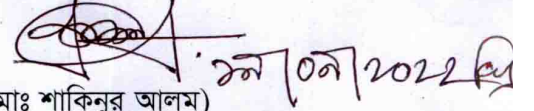 ১৯/০৯/২০২২খ্রি
মোঃ শাকিনুর আলম)